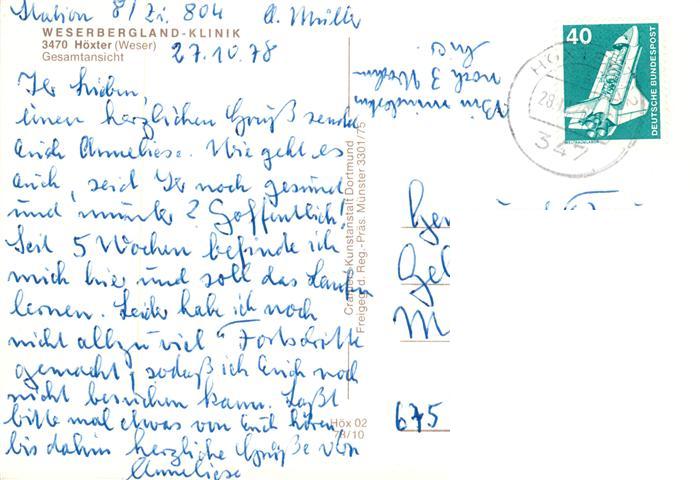 Station 8/Zi. 804 A. Müller
WESERBERGLAND-KLINIK
3470 Höxter (Weser)
Gesamtansicht
27.10.78
Ihr Lieben,
einen herzlichen Gruß sendet
Euch Anneliese. Wie geht es
Euch, seid Ihr noch gesund
und munter? Hoffentlich!
Seit 5 Wochen befinde ich
mich hier und soll das Laufen
lernen. Leider habe ich noch
nicht allzu viel Fortschritte
gemacht, sodaß ich Euch noch
nicht besuchen kann. Laßt
bitte mal etwas von Euch hören,
bis dahin herzliche Grüße von
Anneliese
Bin mindestens
noch 3 Wochen
hier
Cramers Kunstanstalt Dortmund
Freigeg. d. Reg.-Präs. Münster 3301/75
Höx 02
78/10
40
DEUTSCHE BUNDESPOST
WELTRAUMLABOR
28.
347
675